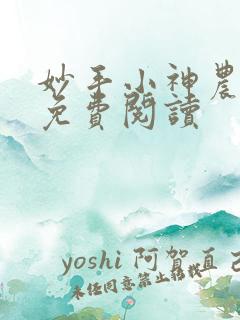 妙手小神農
免費閱讀
yoshi 阿賀直己
未任同意禁止轉載